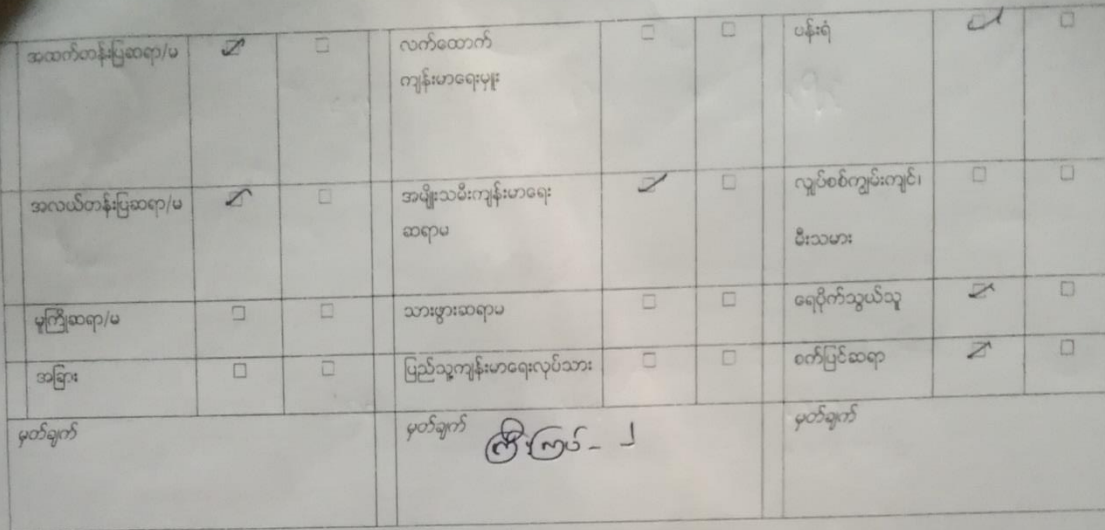 အထက်တန်းပြဆရာ/မ ☑ ☐ လက်ထောက် ☐ ☐ ပန်းရံ ☑ ☐
ကျန်းမာရေးမှူး
အလယ်တန်းပြဆရာ/မ ☑ ☐ အမျိုးသမီးကျန်းမာရေး ☑ ☐ လျှပ်စစ်ကျွမ်းကျင်၊ ☐ ☐
ဆရာမ မီးသမား
မူကြိုဆရာ/မ ☐ ☐ သားဖွားဆရာမ ☐ ☐ ရေပိုက်သွယ်သူ ☑ ☐
အခြား ☐ ☐ ပြည်သူ့ကျန်းမာရေးလုပ်သား ☐ ☐ စက်ပြင်ဆရာ ☑ ☐
မှတ်ချက် မှတ်ချက် ကြီးကြပ် - ၂ မှတ်ချက်